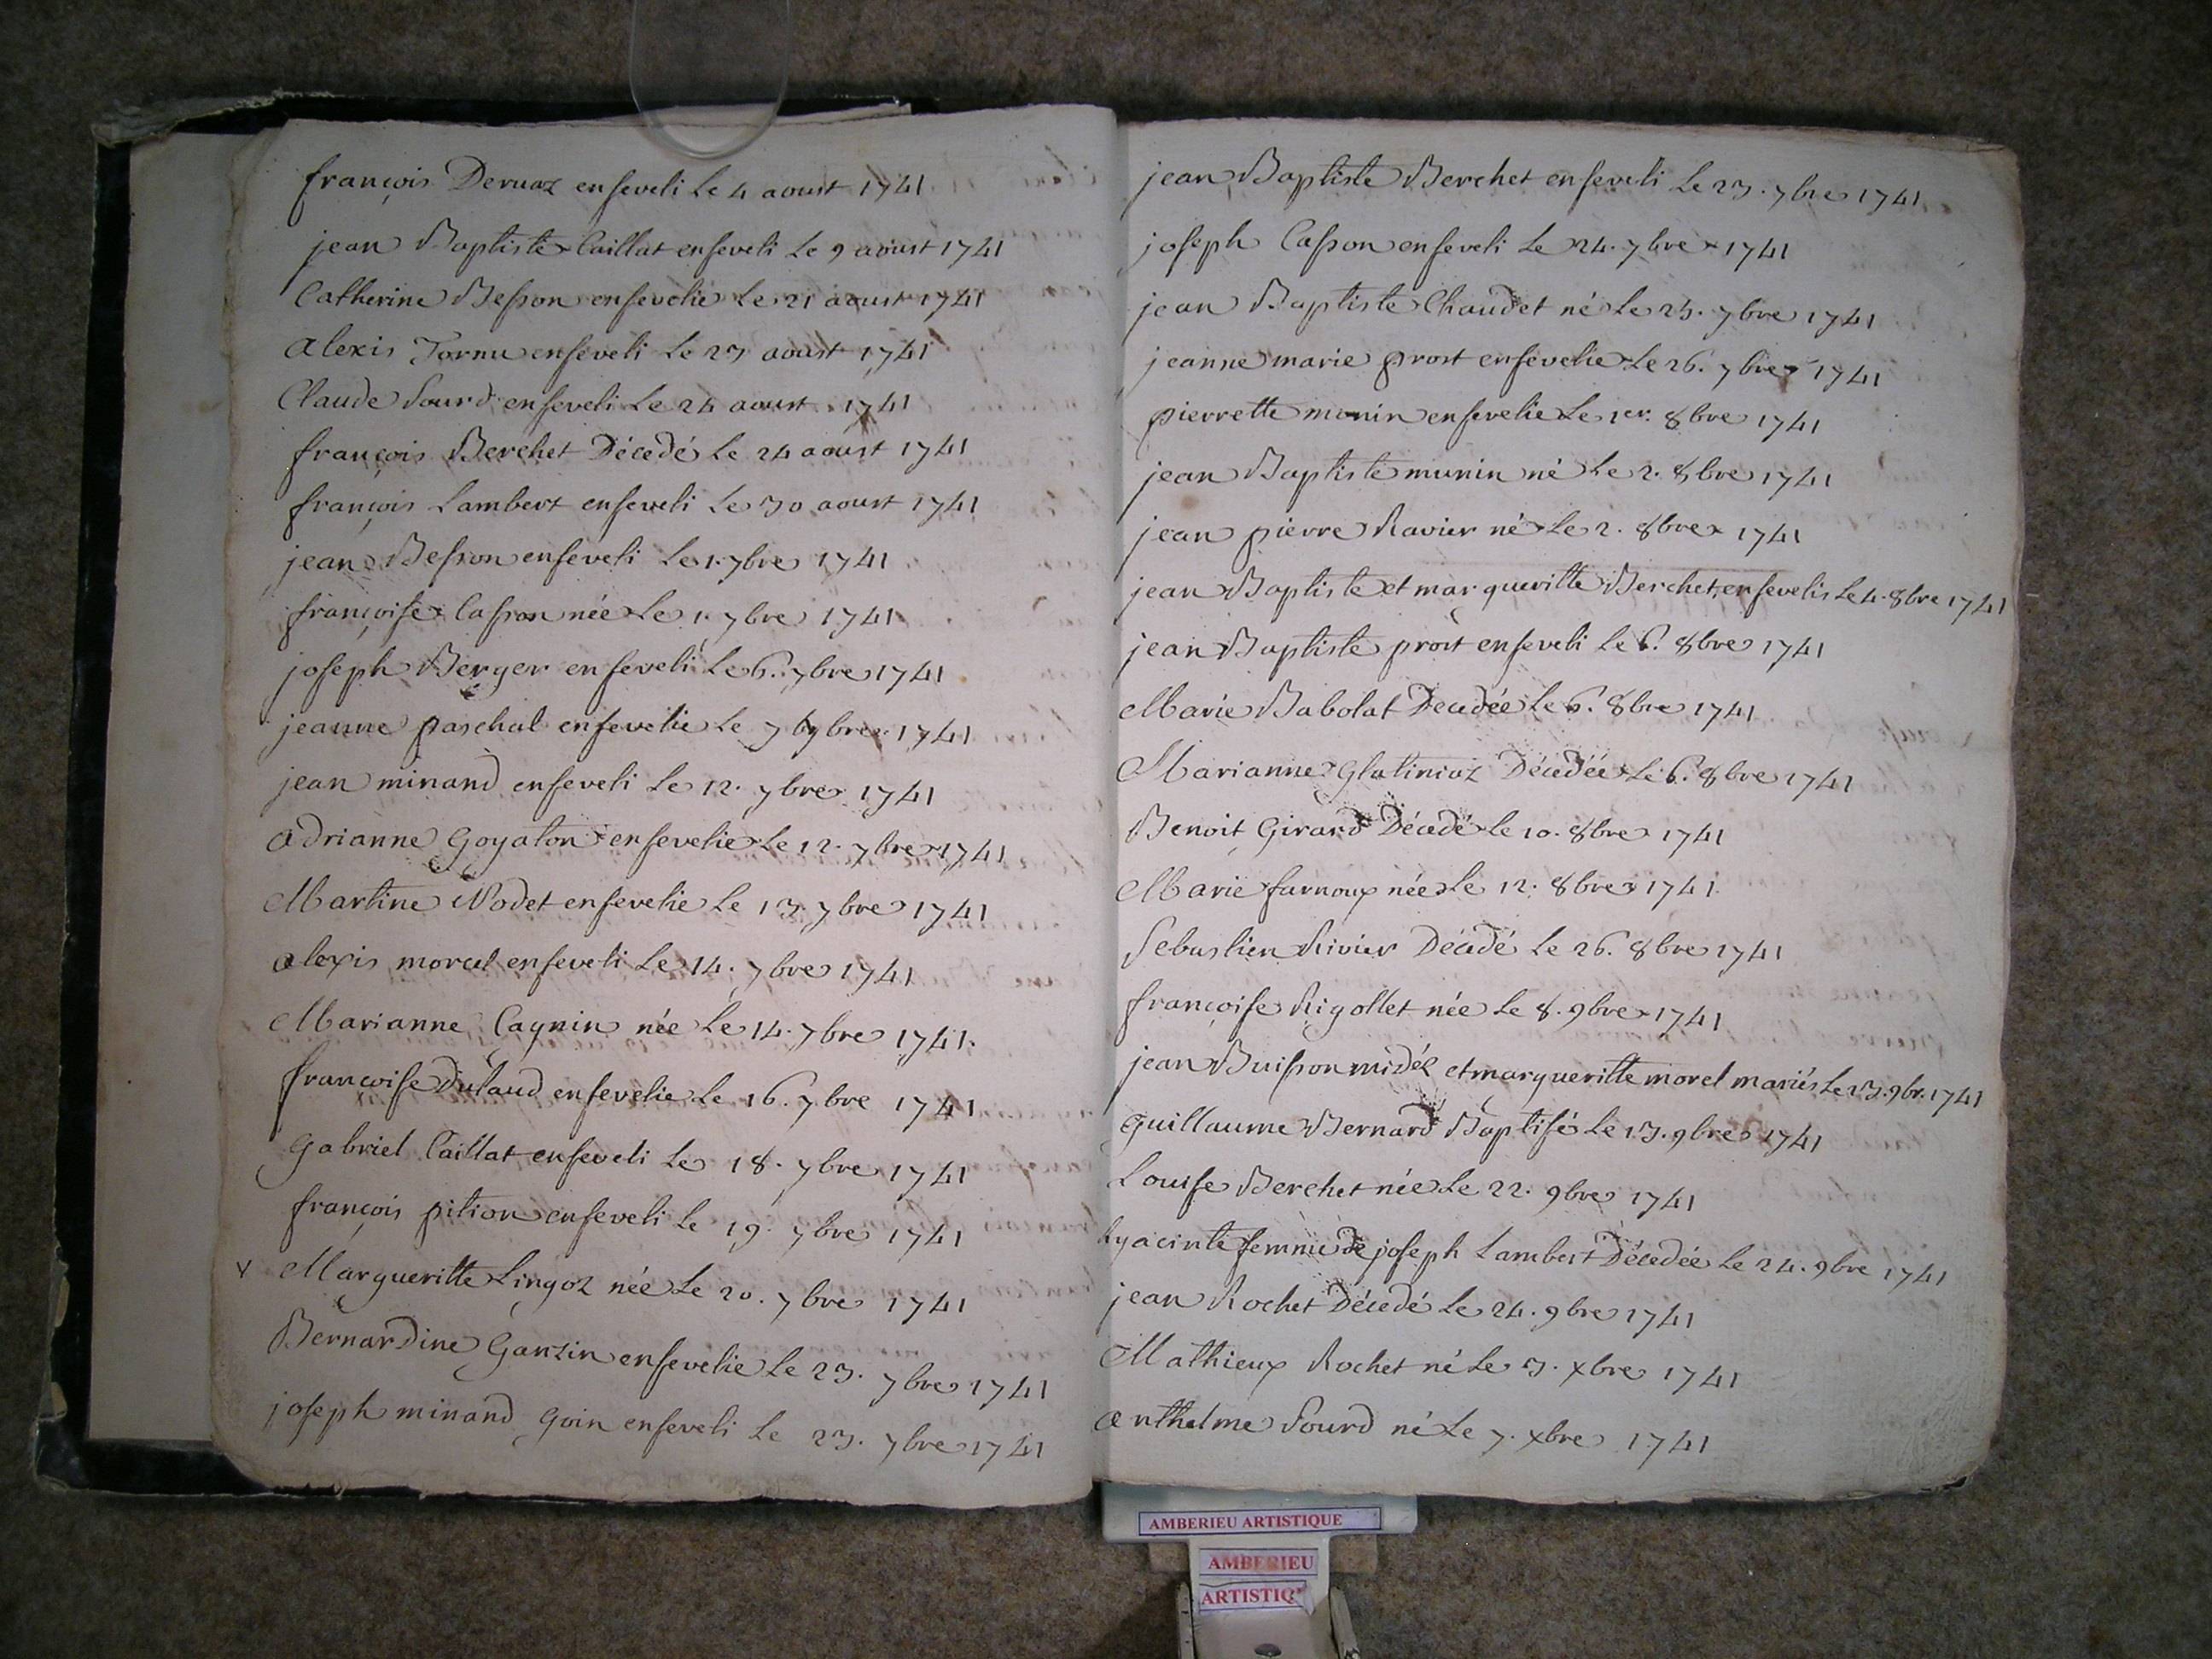 françois Deruaz enseveli Le 4 aoust 1741
jean Baptiste Caillat enseveli Le 9 aoust 1741
Catherine Besson ensevelie Le 21 aoust 1741
alexis Tornu enseveli Le 23 aoust 1741
Claude Sourd enseveli Le 24 aoust 1741
françois Berchet Décedé Le 24 aoust 1741
françois Lambert enseveli Le 30 aoust 1741
jean Besson enseveli Le 1. 7bre 1741
françoise Casson née Le 1. 7bre 1741
joseph Berger enseveli Le 6. 7bre 1741
jeanne paschal ensevelie Le 7 7bre 1741
jean minand enseveli Le 12. 7bre 1741
adrianne Goyaton ensevelie Le 12. 7bre 1741
Martine Nodet ensevelie Le 13. 7bre 1741
alexis morcel enseveli Le 14. 7bre 1741
Marianne Cagnin née Le 14. 7bre 1741.
françoise Dulaud ensevelie Le 16. 7bre 1741
Gabriel Caillat enseveli Le 18. 7bre 1741
françois pition enseveli Le 19. 7bre 1741
Margueritte Lingoz née Le 20. 7bre 1741
Bernardine Ganzin ensevelie Le 23. 7bre 1741
joseph minand Goin enseveli Le 23. 7bre 1741
jean Baptiste Berchet enseveli Le 23. 7bre 1741
joseph Casson enseveli Le 24. 7bre 1741
jean Baptiste Chaudet né Le 25. 7bre 1741
jeanne marie prost ensevelie Le 26. 7bre 1741
pierrette monin ensevelie Le 1er. 8bre 1741
jean Baptiste munin né Le 2. 8bre 1741
jean pierre Ravier né Le 2. 8bre 1741
jean Baptiste et margueritte Berchet, ensevelis Le 4. 8bre 1741
jean Baptiste prost enseveli Le 6. 8bre 1741
Marie Babolat Decedée Le 6. 8bre 1741
Marianne Glatiniaz Décedée Le 6. 8bre 1741
Benoit Girard Décedé Le 10. 8bre 1741
Marie farnoux née Le 12. 8bre 1741.
Sebastien Rivier Décedé Le 26. 8bre 1741
françoise Rigollet née Le 8. 9bre 1741
jean Buisson midéz et margueritte morel mariés Le 13. 9br. 1741
Guillaume Bernard Baptisé Le 13. 9bre 1741
Louise Berchet née Le 22. 9bre 1741
hyacinte femme de joseph Lambert Décedée Le 24. 9bre 1741
jean Rochet Décedé Le 24. 9bre 1741
Mathieux Rochet né Le 3. xbre 1741
anthelme Sourd né Le 7. xbre 1741
AMBERIEU ARTISTIQUE
AMBERIEU
ARTISTIQ